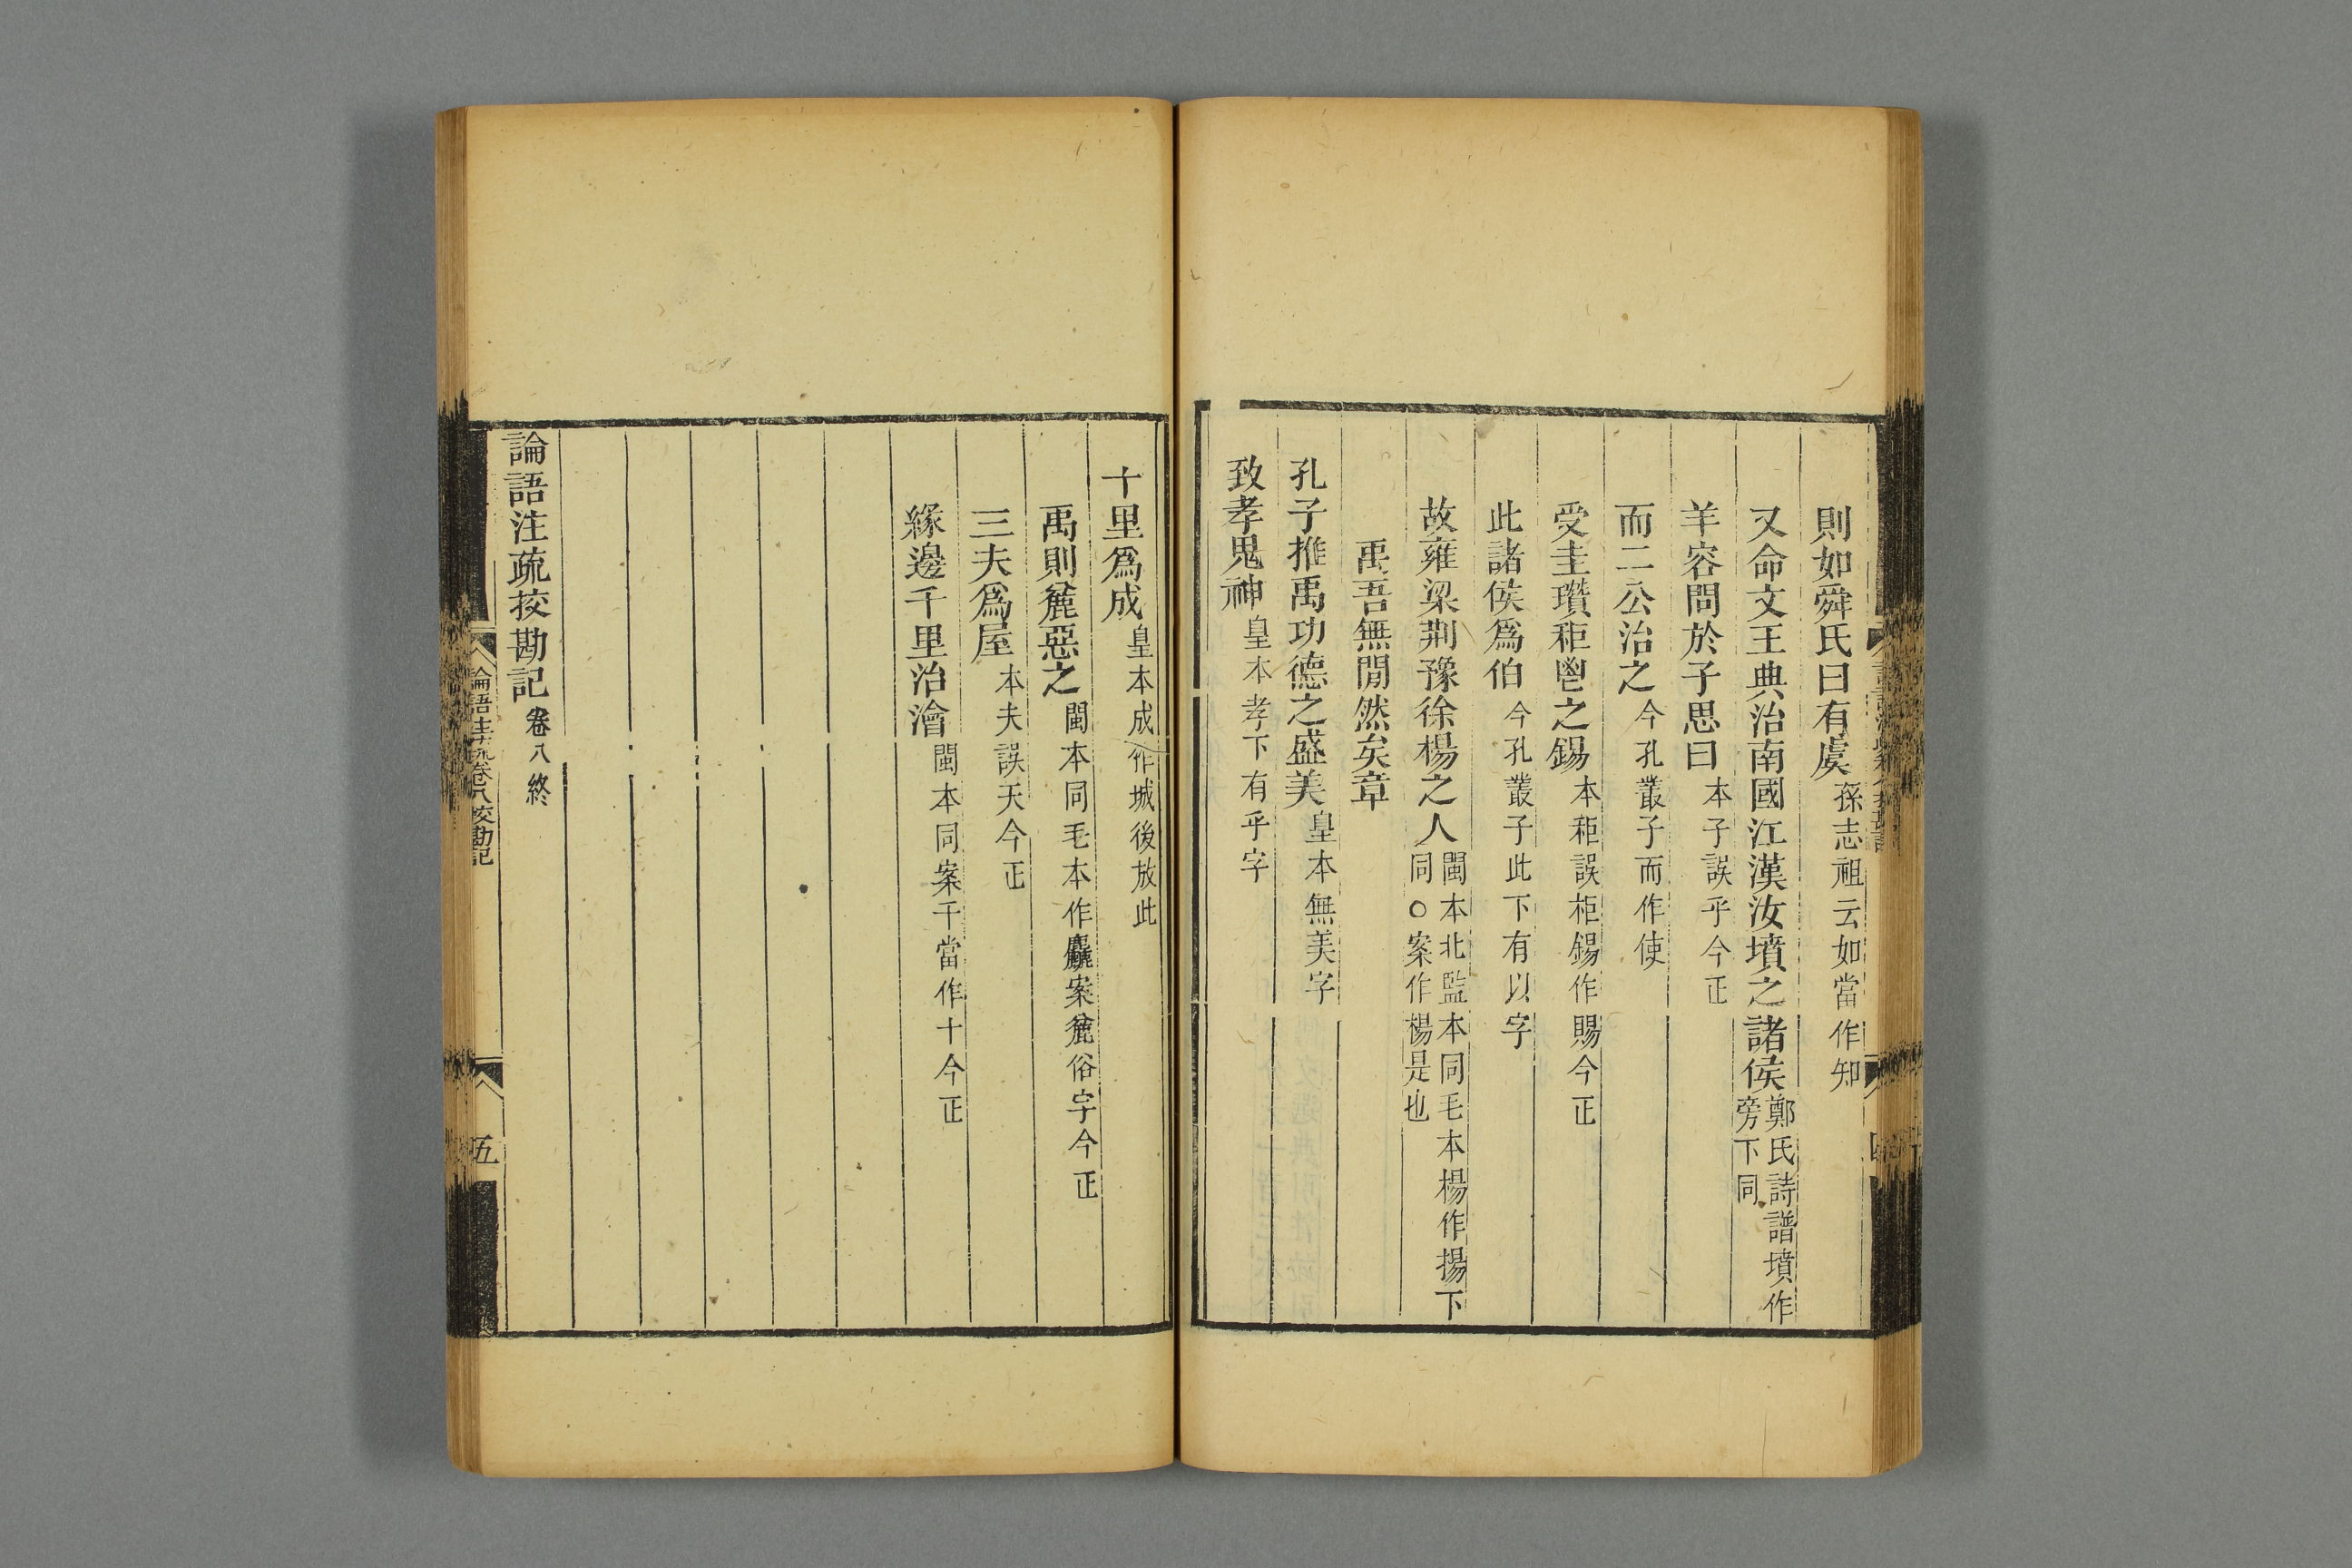 則如舜氏曰有虞孫志祖云如當作知
又命文王典治南國江漢汝墳之諸侯鄭氏詩譜墳作旁下同
羊容問於子思曰本子誤乎今正
而二公治之今孔叢子而作使
受圭瓚秬鬯之錫本秬誤柜錫作賜今正
此諸侯爲伯今孔叢子此下有以字
故雍梁荆豫徐楊之人閩本北監本同毛本楊作揚下同○案作楊是也
禹吾無閒然矣章
孔子推禹功德之盛美皇本無美字
致孝鬼神皇本孝下有乎字
十里爲成皇本成作城後放此
禹則麄惡之閩本同毛本作麤案麄俗字今正
三夫爲屋本夫誤天今正
緣邊千里治澮閩本同案千當作十今正
論語注疏挍勘記卷八終
論語注疏卷八挍勘記
五